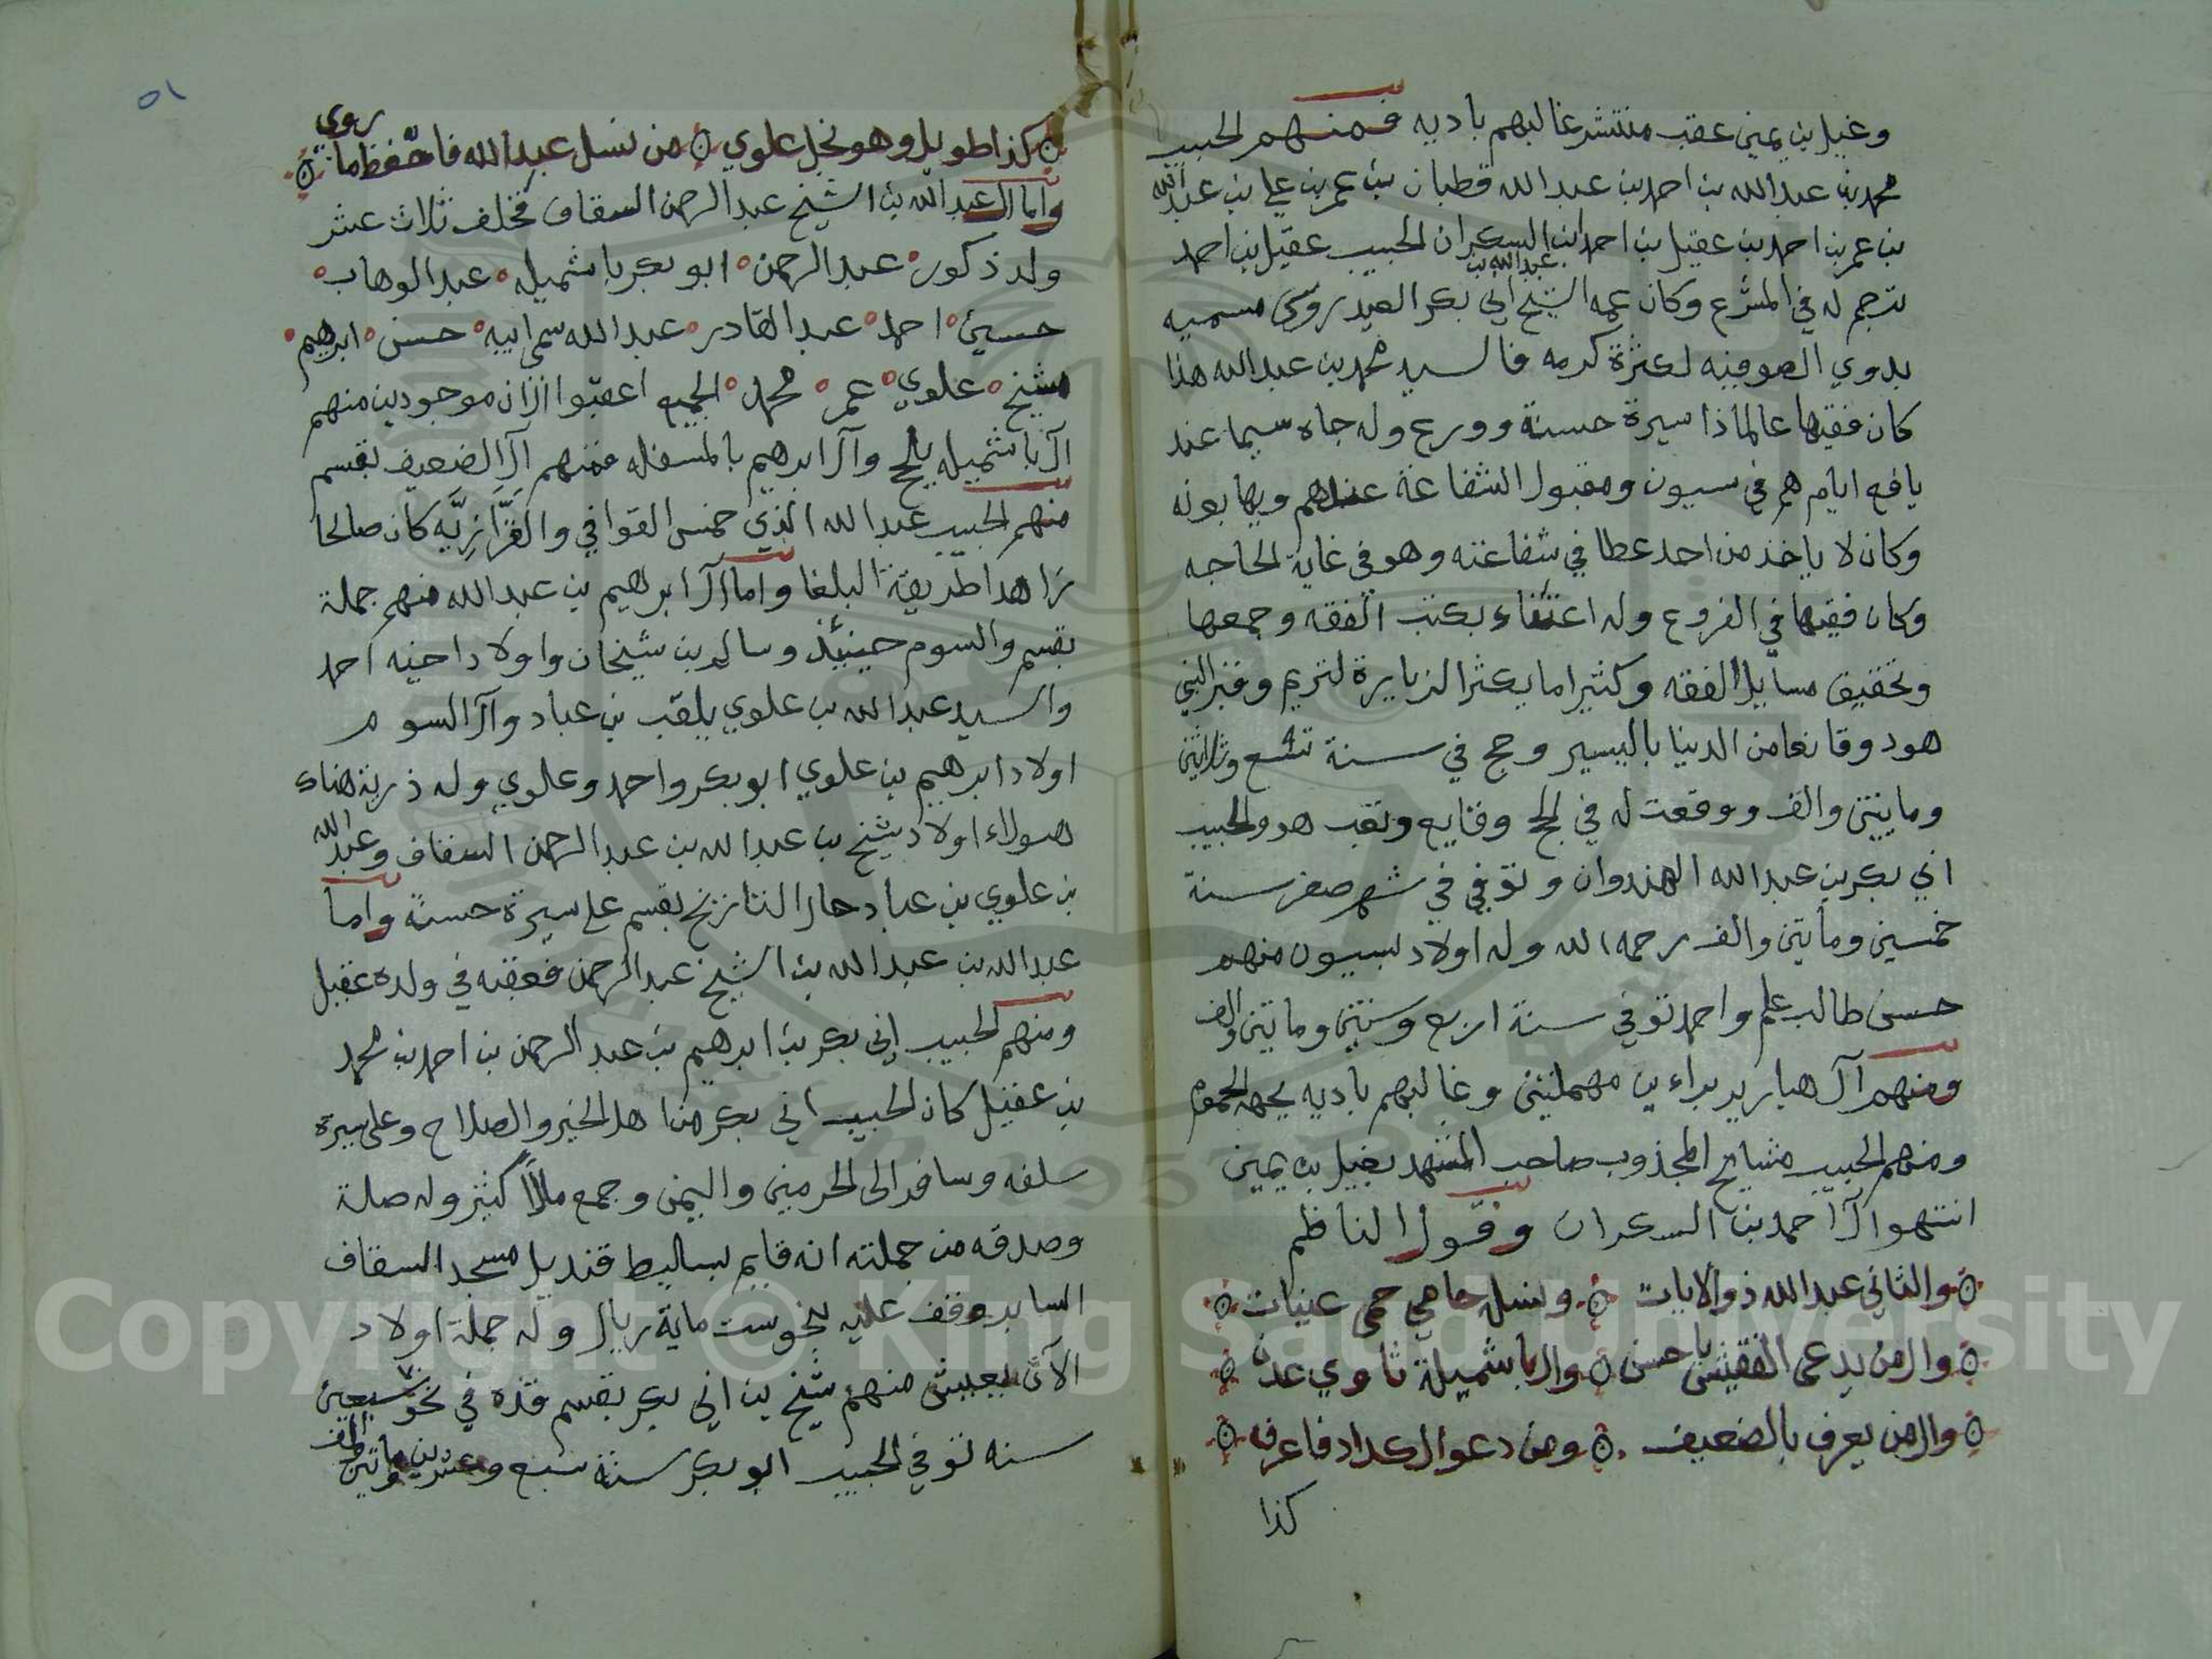 وغيل بن يمين عقب منتشر غالبهم باديه فمنهم الحبيب
محمد بن عبدالله بن احمد بن عبدالله قطبان بن عمر بن علي بن عبدالله
بن عمر بن احمد بن عقيل بن احمد ابن السكران الحبيب عقيل بن احمد
ترجم له في المشرع وكان عمه الشيخ عبدالله بن ابي بكر العيدروس مسميه
بدوي الصوفيه لكثرة كرمه فالسيد محمد بن عبدالله هذا
كان فقيها عالما ذا سيرة حسنة وورع وله جاه سيما عند
يافع ايام هم في سيون ومقبول الشفاعة عندهم ويهابونه
وكان لا ياخذ من احد عطا في شفاعته وهو في غاية الحاجه
وكان فقيها في الفروع وله اعتناء بكتب الفقه وجمعها
وتحقيق مسايل الفقه وكثيرا ما يكثر الزيارة لتريم وقبر النبي
هود وقانعا من الدنيا باليسير وحج في سنة تسع وثلاثين
ومايتين والف ووقعت له في الحج وقايع وتعب هو والحبيب
ابي بكر بن عبدالله الهندوان وتوفي في شهر صفر سنة
خمسين ومأتين والف رحمه الله وله اولاد بسيون منهم
حسن طالب علم واحمد توفي سنة اربع وستين ومايتين والف
ومنهم آل هبارير براءين مهملتين وغالبهم باديه بجهة الحموم
ومنهم الحبيب مشايخ المجذوب صاحب المشهد بغيل بن يمين
انتهوا آل احمد بن السكران وقول الناظم
والثاني عبدالله ذو الايات ونسل حامي حمى عينات
وال من يدعى الفقيش باحسن وال باشميلة ثاوي عدن
وال من يعرف بالضعيف ومن دعوا الكداد فاعرف
كذا
٥١
كذا طويل وهو نجل علوي من نسل عبدالله فاحفظ ما روي
واما آل عبدالله بن الشيخ عبدالرحمن السقاف فخلف ثلاث عشر
ولد ذكور عبدالرحمن ابوبكر باشميله عبدالوهاب
حسين احمد عبدالقادر عبدالله سمي ابيه حسن ابرهيم
شيخ علوي عمر محمد الجميع اعقبوا الان موجودين منهم
آل باشميله بلحج وآل ابرهيم بالمسفله فمنهم آل الضعيف بقسم
منهم الحبيب عبدالله الذي خمس القوافي والفزازيه كان صالحا
زاهدا طريقة البلغا واما آل ابرهيم بن عبدالله منهم جملة
بقسم والسوم حينئذ وسالم بن شيخان واولاد اخيه احمد
والسيد عبدالله بن علوي يلقب بن عباد وآل السوم
اولاد ابرهيم بن علوي ابوبكر واحمد وعلوي وله ذرية هناك
هولاء اولاد شيخ بن عبدالله بن عبدالرحمن السقاف وعبدالله
بن علوي بن عباد حال التاريخ بقسم على سيرة حسنة واما
عبدالله بن عبدالله بن الشيخ عبدالرحمن فعقبه في ولده عقيل
ومنهم الحبيب ابي بكر بن ابرهيم بن عبدالرحمن بن احمد بن محمد
بن عقيل كان الحبيب ابي بكر من اهل الخير والصلاح وعلى سيرة
سلفه وسافر الى الحرمين واليمن وجمع مالا كثير وله صلة
وصدقه من جملته انه قايم بساليط قنديل مسجد السقاف
الساير وقف عليه بنحو ست ماية ريال وله جملة اولاد
الآن يعيش منهم شيخ بن ابي بكر بقسم قده في نحو سبعين
سنه توفي الحبيب ابوبكر سنة سبع وعشرين ومأتين والف